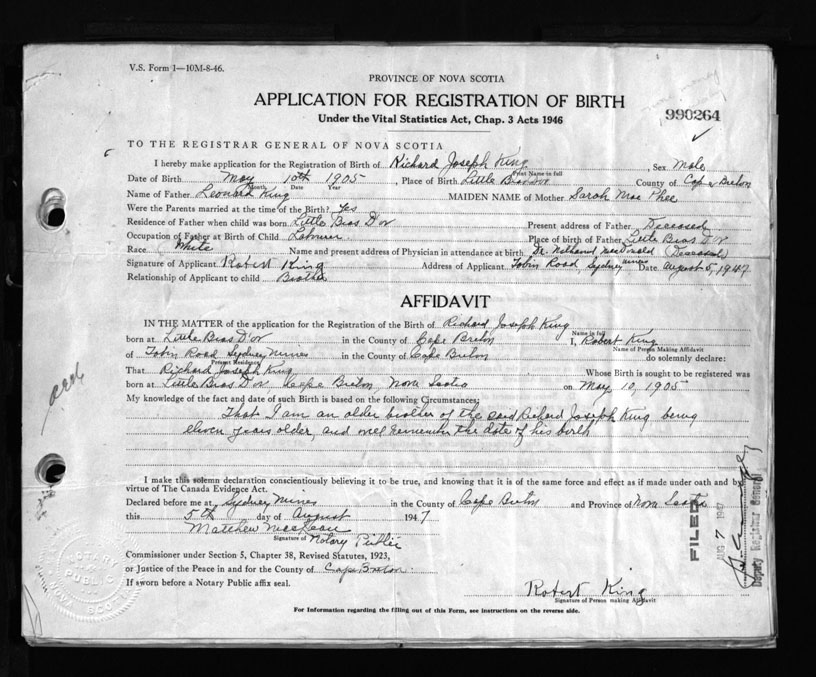 V.S. Form 1—10M-8-46.
PROVINCE OF NOVA SCOTIA
APPLICATION FOR REGISTRATION OF BIRTH
990264
Under the Vital Statistics Act, Chap. 3 Acts 1946
TO THE REGISTRAR GENERAL OF NOVA SCOTIA
I hereby make application for the Registration of Birth of Richard Joseph King, Sex Male
Print Name in full
Date of Birth May 10th 1905, Place of Birth Little Bras D'or County of Cape Breton
Month Date Year
Name of Father Leonard King MAIDEN NAME of Mother Sarah Mac Phee
Were the Parents married at the time of the Birth? Yes
Residence of Father when child was born Little Bras D'or Present address of Father Deceased
Occupation of Father at Birth of Child Labourer Place of birth of Father Little Bras D'or
Race White Name and present address of Physician in attendance at birth Dr. MacDonald (Deceased)
Signature of Applicant Robert King Address of Applicant Tobin Road, Sydney Mines Date August 5, 1947
Relationship of Applicant to child Brother
AFFIDAVIT
IN THE MATTER of the application for the Registration of the Birth of Richard Joseph King
Name in full
born at Little Bras D'or in the County of Cape Breton I, Robert King
Name of Person Making Affidavit
of Tobin Road Sydney Mines in the County of Cape Breton do solemnly declare:
Present Residence
That Richard Joseph King Whose Birth is sought to be registered was
born at Little Bras D'or Cape Breton, Nova Scotia on May 10, 1905
My knowledge of the fact and date of such Birth is based on the following Circumstances:
That I am an older brother of the said Richard Joseph King being
eleven years older, and well remember the date of his birth
I make this solemn declaration conscientiously believing it to be true, and knowing that it is of the same force and effect as if made under oath and by
virtue of The Canada Evidence Act.
Declared before me at Sydney Mines in the County of Cape Breton and Province of Nova Scotia
this 5th day of August 1947
Matthew MacLean
Signature of Notary Public
Commissioner under Section 5, Chapter 38, Revised Statutes, 1923,
or Justice of the Peace in and for the County of Cape Breton.
If sworn before a Notary Public affix seal.
Robert King
Signature of Person making Affidavit
For Information regarding the filling out of this Form, see instructions on the reverse side.
FILED
AUG 7 1947
Deputy Registrar General
NOTARY
PUBLIC
NOVA SCOTIA